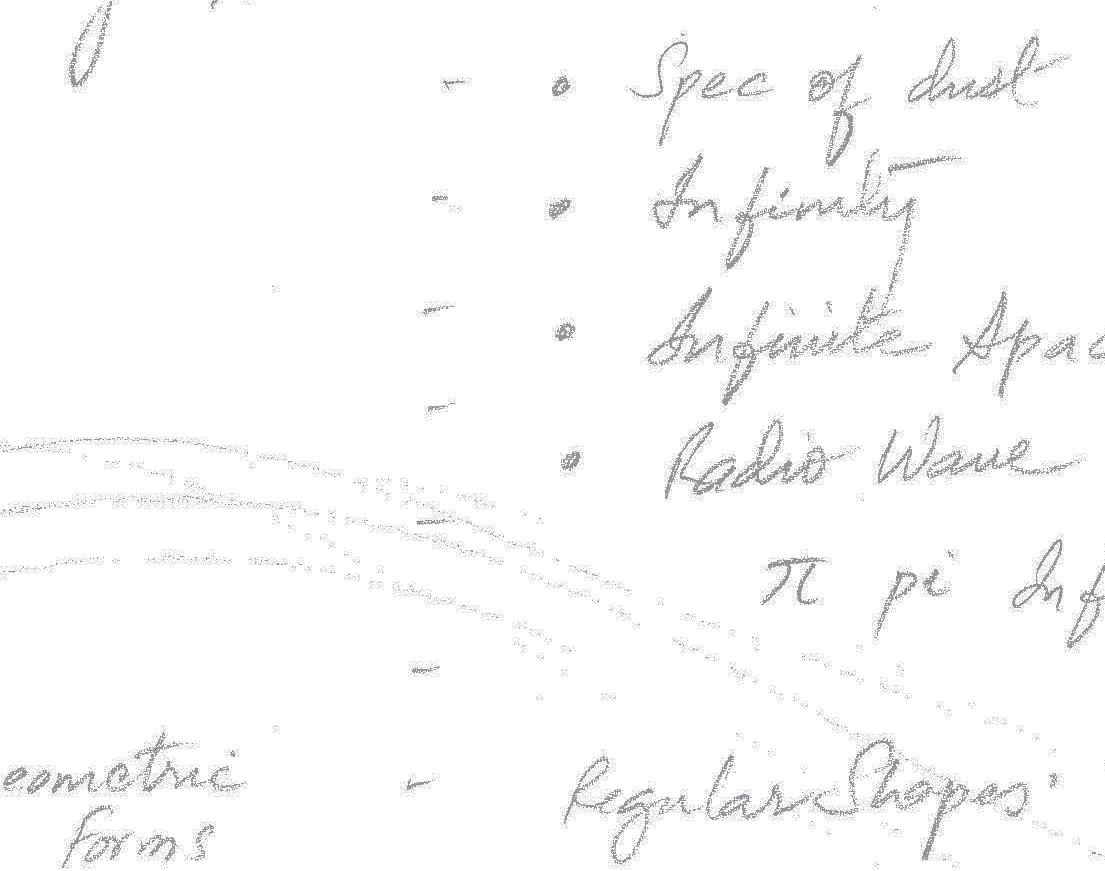 - • Spec of dust
- • Infinity
- • Infinite Spac
- • Radio Wave
- π pi Inf
-
eometric - Regular Shapes
Forms